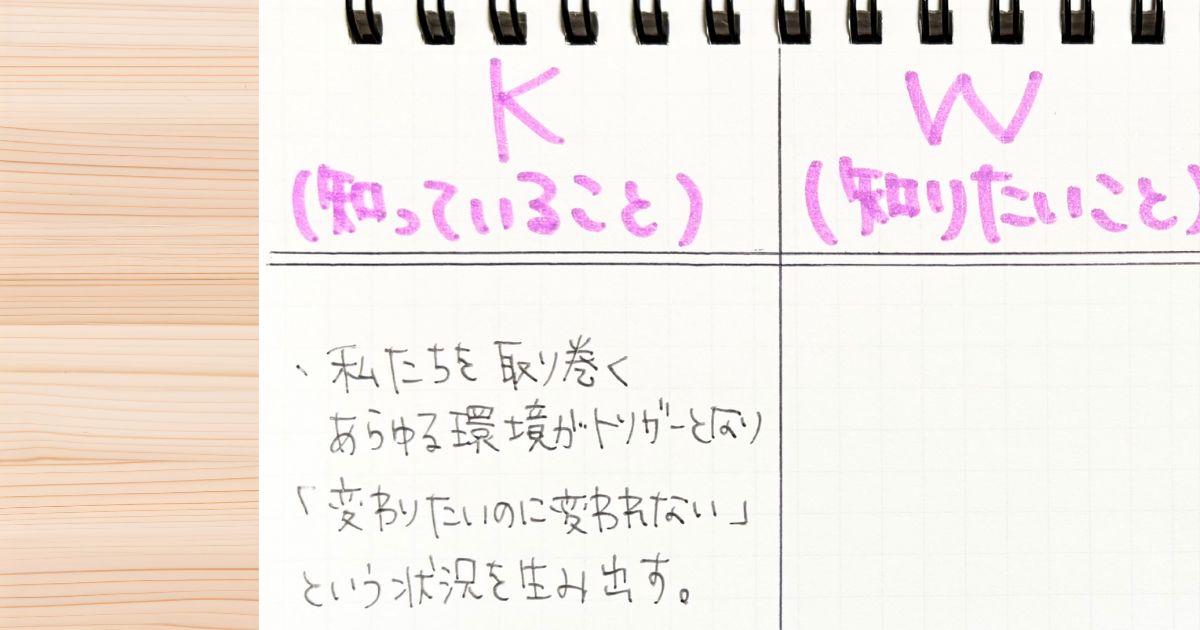 K
(知っていること)
W
(知りたいこと)
・私たちを取り巻く
あらゆる環境がトリガーとなり
「変わりたいのに変われない」
という状況を生み出す。